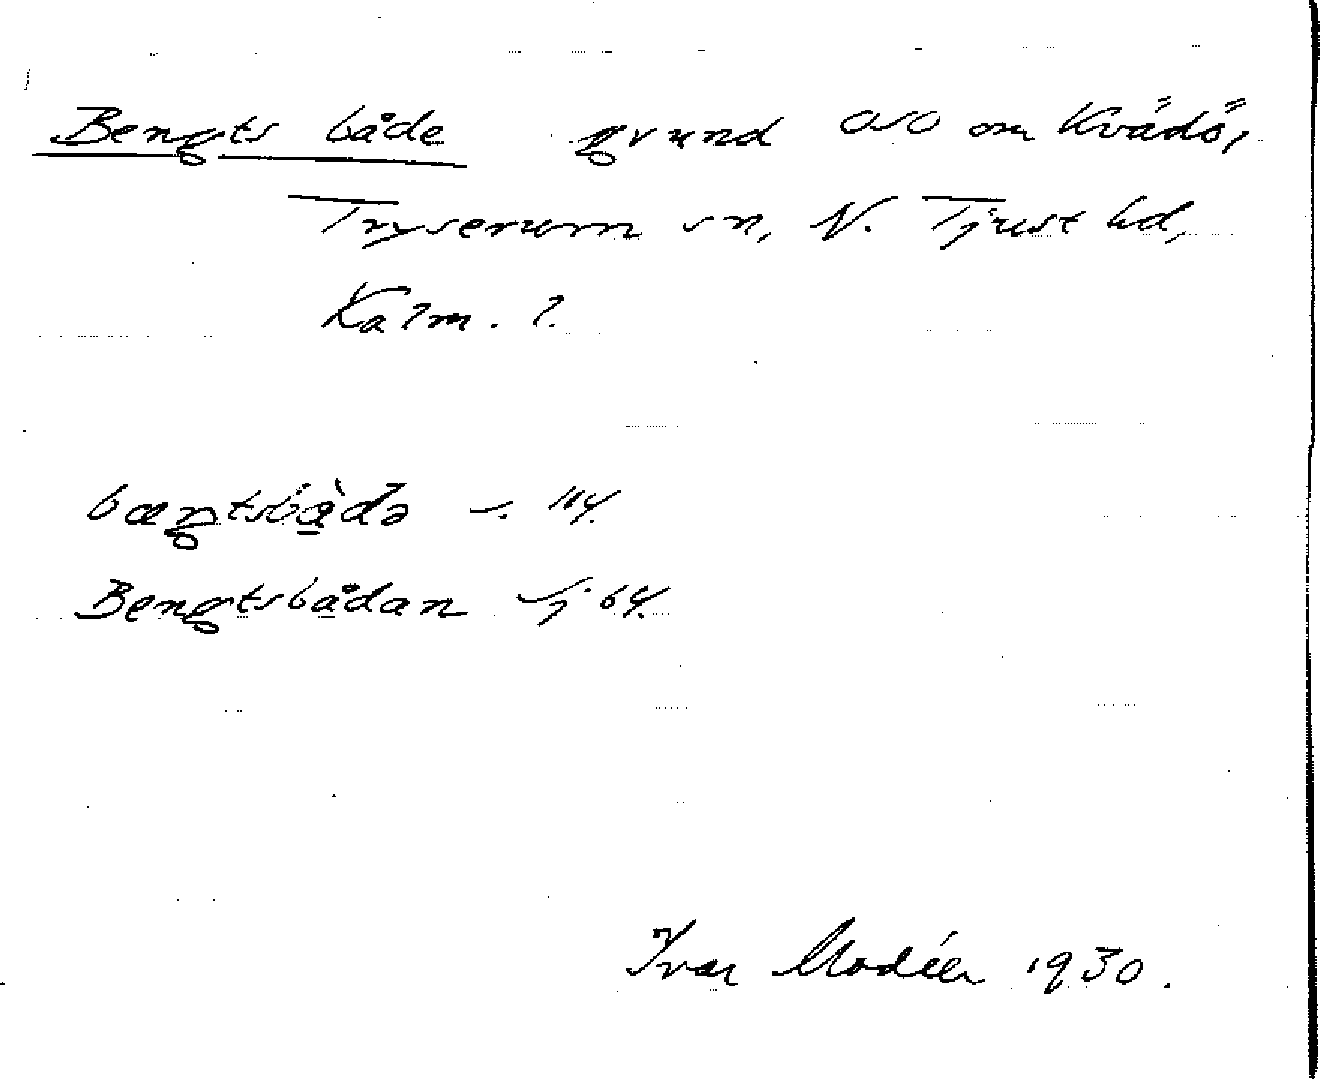 Bengts både grund OSO om Kvädö,
Tryserum sn, N. Tjust hd,
Kalm. l.
Bengtsbådan Sj 64.
Ivar Modéer 1930.